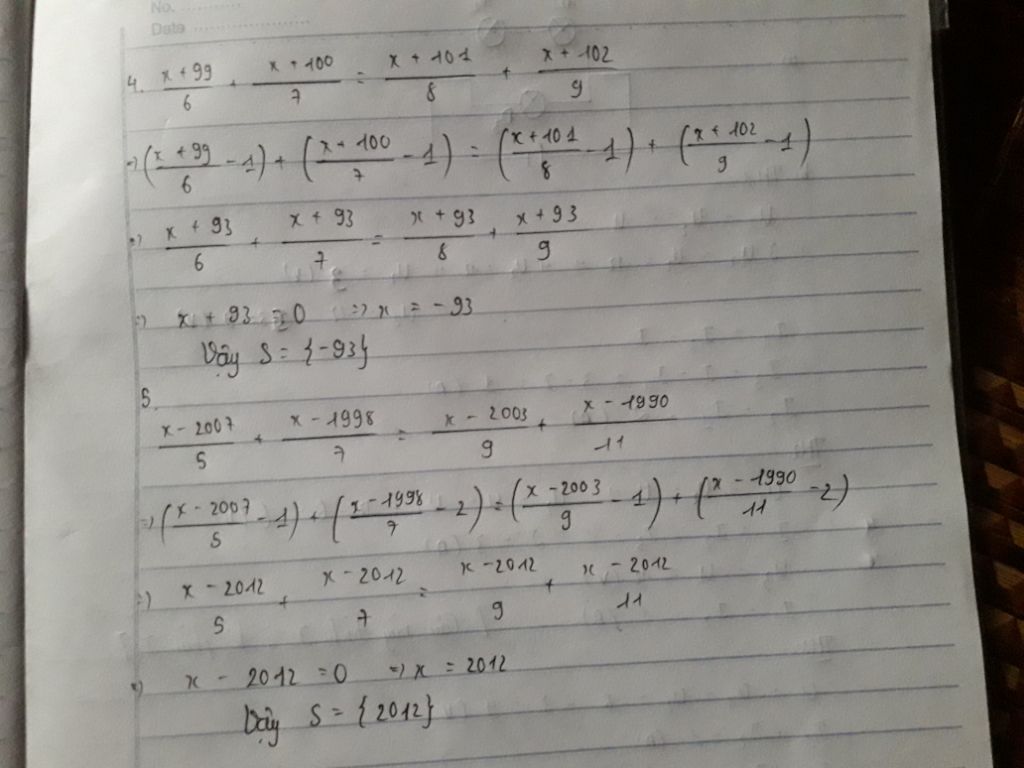 No. ............
Date ........................
4. (x + 99)/6 + (x + 100)/7 = (x + 101)/8 + (x + 102)/9
=> ((x + 99)/6 - 1) + ((x + 100)/7 - 1) = ((x + 101)/8 - 1) + ((x + 102)/9 - 1)
=> (x + 93)/6 + (x + 93)/7 = (x + 93)/8 + (x + 93)/9
=> x + 93 = 0 => x = - 93
Vậy S = {-93}
5.
(x - 2007)/5 + (x - 1998)/7 = (x - 2003)/9 + (x - 1990)/11
=> ((x - 2007)/5 - 1) + ((x - 1998)/7 - 2) = ((x - 2003)/9 - 1) + ((x - 1990)/11 - 2)
=> (x - 2012)/5 + (x - 2012)/7 = (x - 2012)/9 + (x - 2012)/11
=> x - 2012 = 0 => x = 2012
Vậy S = {2012}